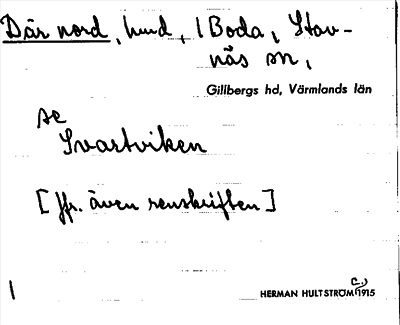 Där nord, hmd, i Boda, Stav-
näs sn,
Gillbergs hd, Värmlands län
se
Svartviken
[jfr. även renskriften]
1
HERMAN HULTSTRÖM (c.) 1915